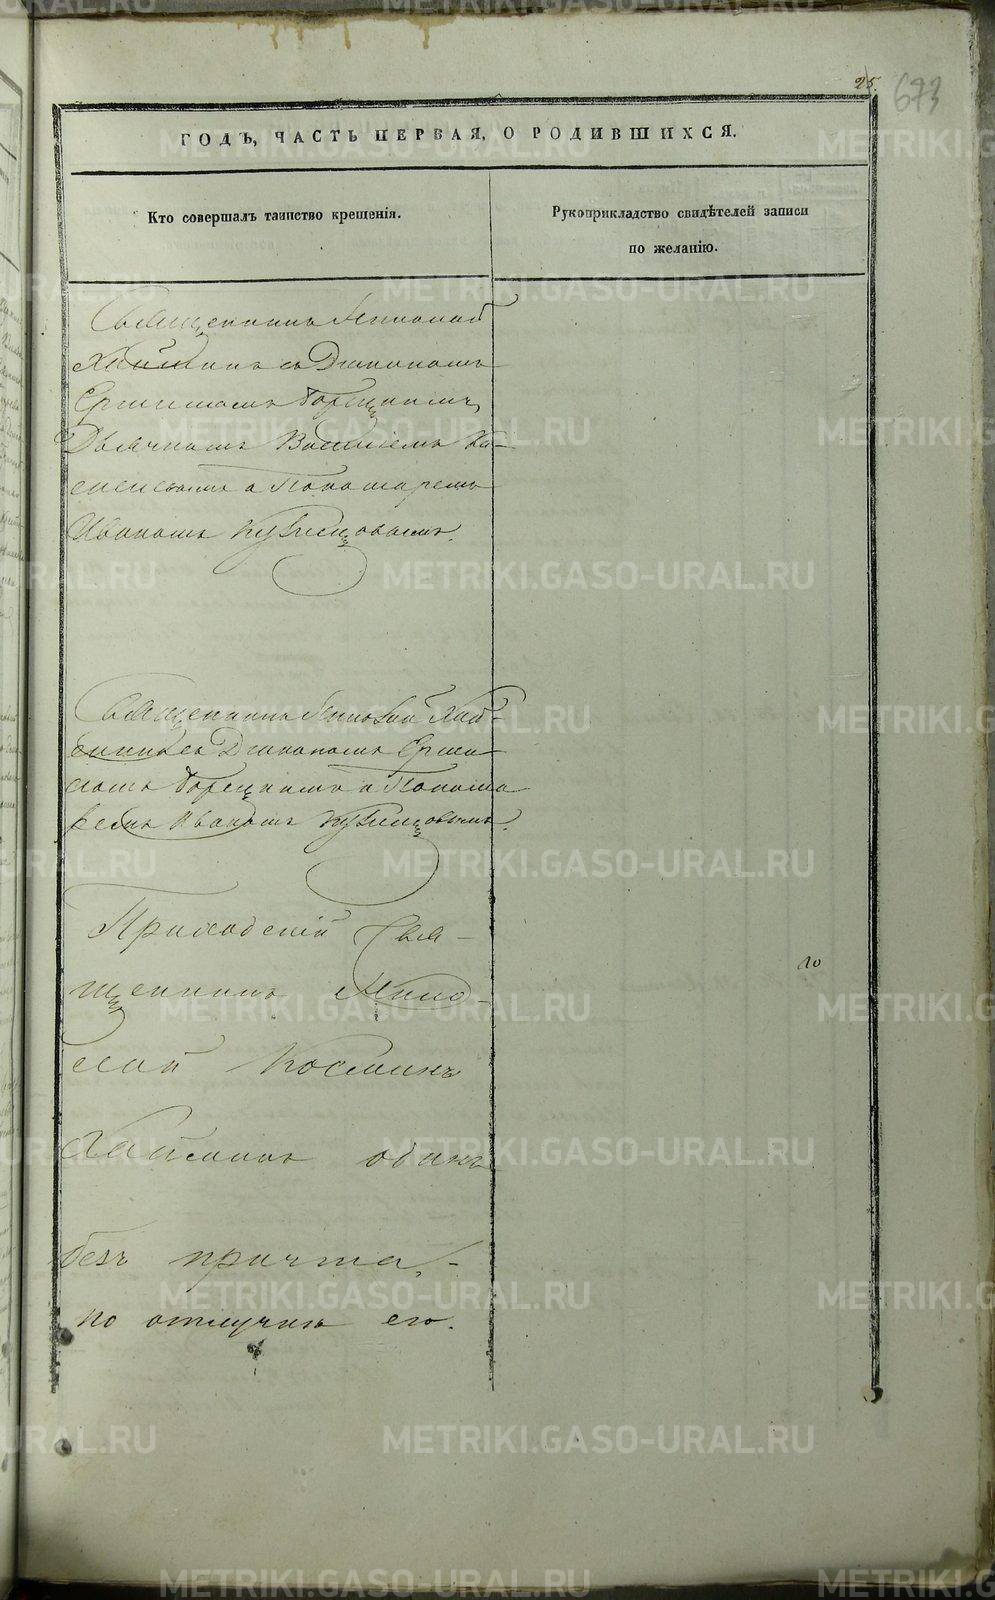 25.
673
ГОДЪ, ЧАСТЬ ПЕРВАЯ, О РОДИВШИХСЯ.
Кто совершалъ таинство крещенія.
Рукоприкладство свидѣтелей записи
по желанію.
Священникъ Николай
Хайминъ съ Діакономъ
Ермиломъ Борецкимъ,
Дьячкомъ Василіемъ
и Пономаремъ
Иваномъ Кузнецовымъ.
Священникъ Николай Хай-
минъ съ Діакономъ Ерми-
ломъ Борецкимъ и Понома
ремъ Иваномъ Кузнецовымъ.
Приходскій Свя-
щенникъ Нико-
лай Косминъ
Хайминъ одинъ
безъ причта, -
по отлучкѣ его.
METRIKI.GASO-URAL.RU